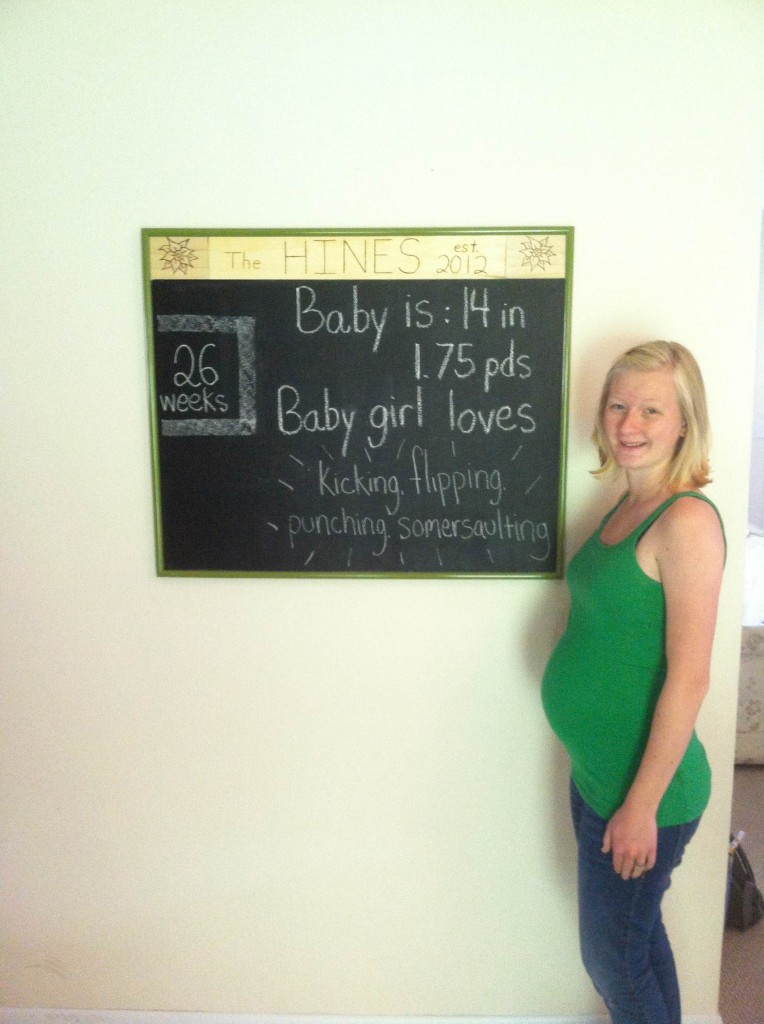 The HINES est. 2012
Baby is: 14 in
1.75 pds
26
weeks
Baby girl loves
kicking, flipping,
punching, somersaulting